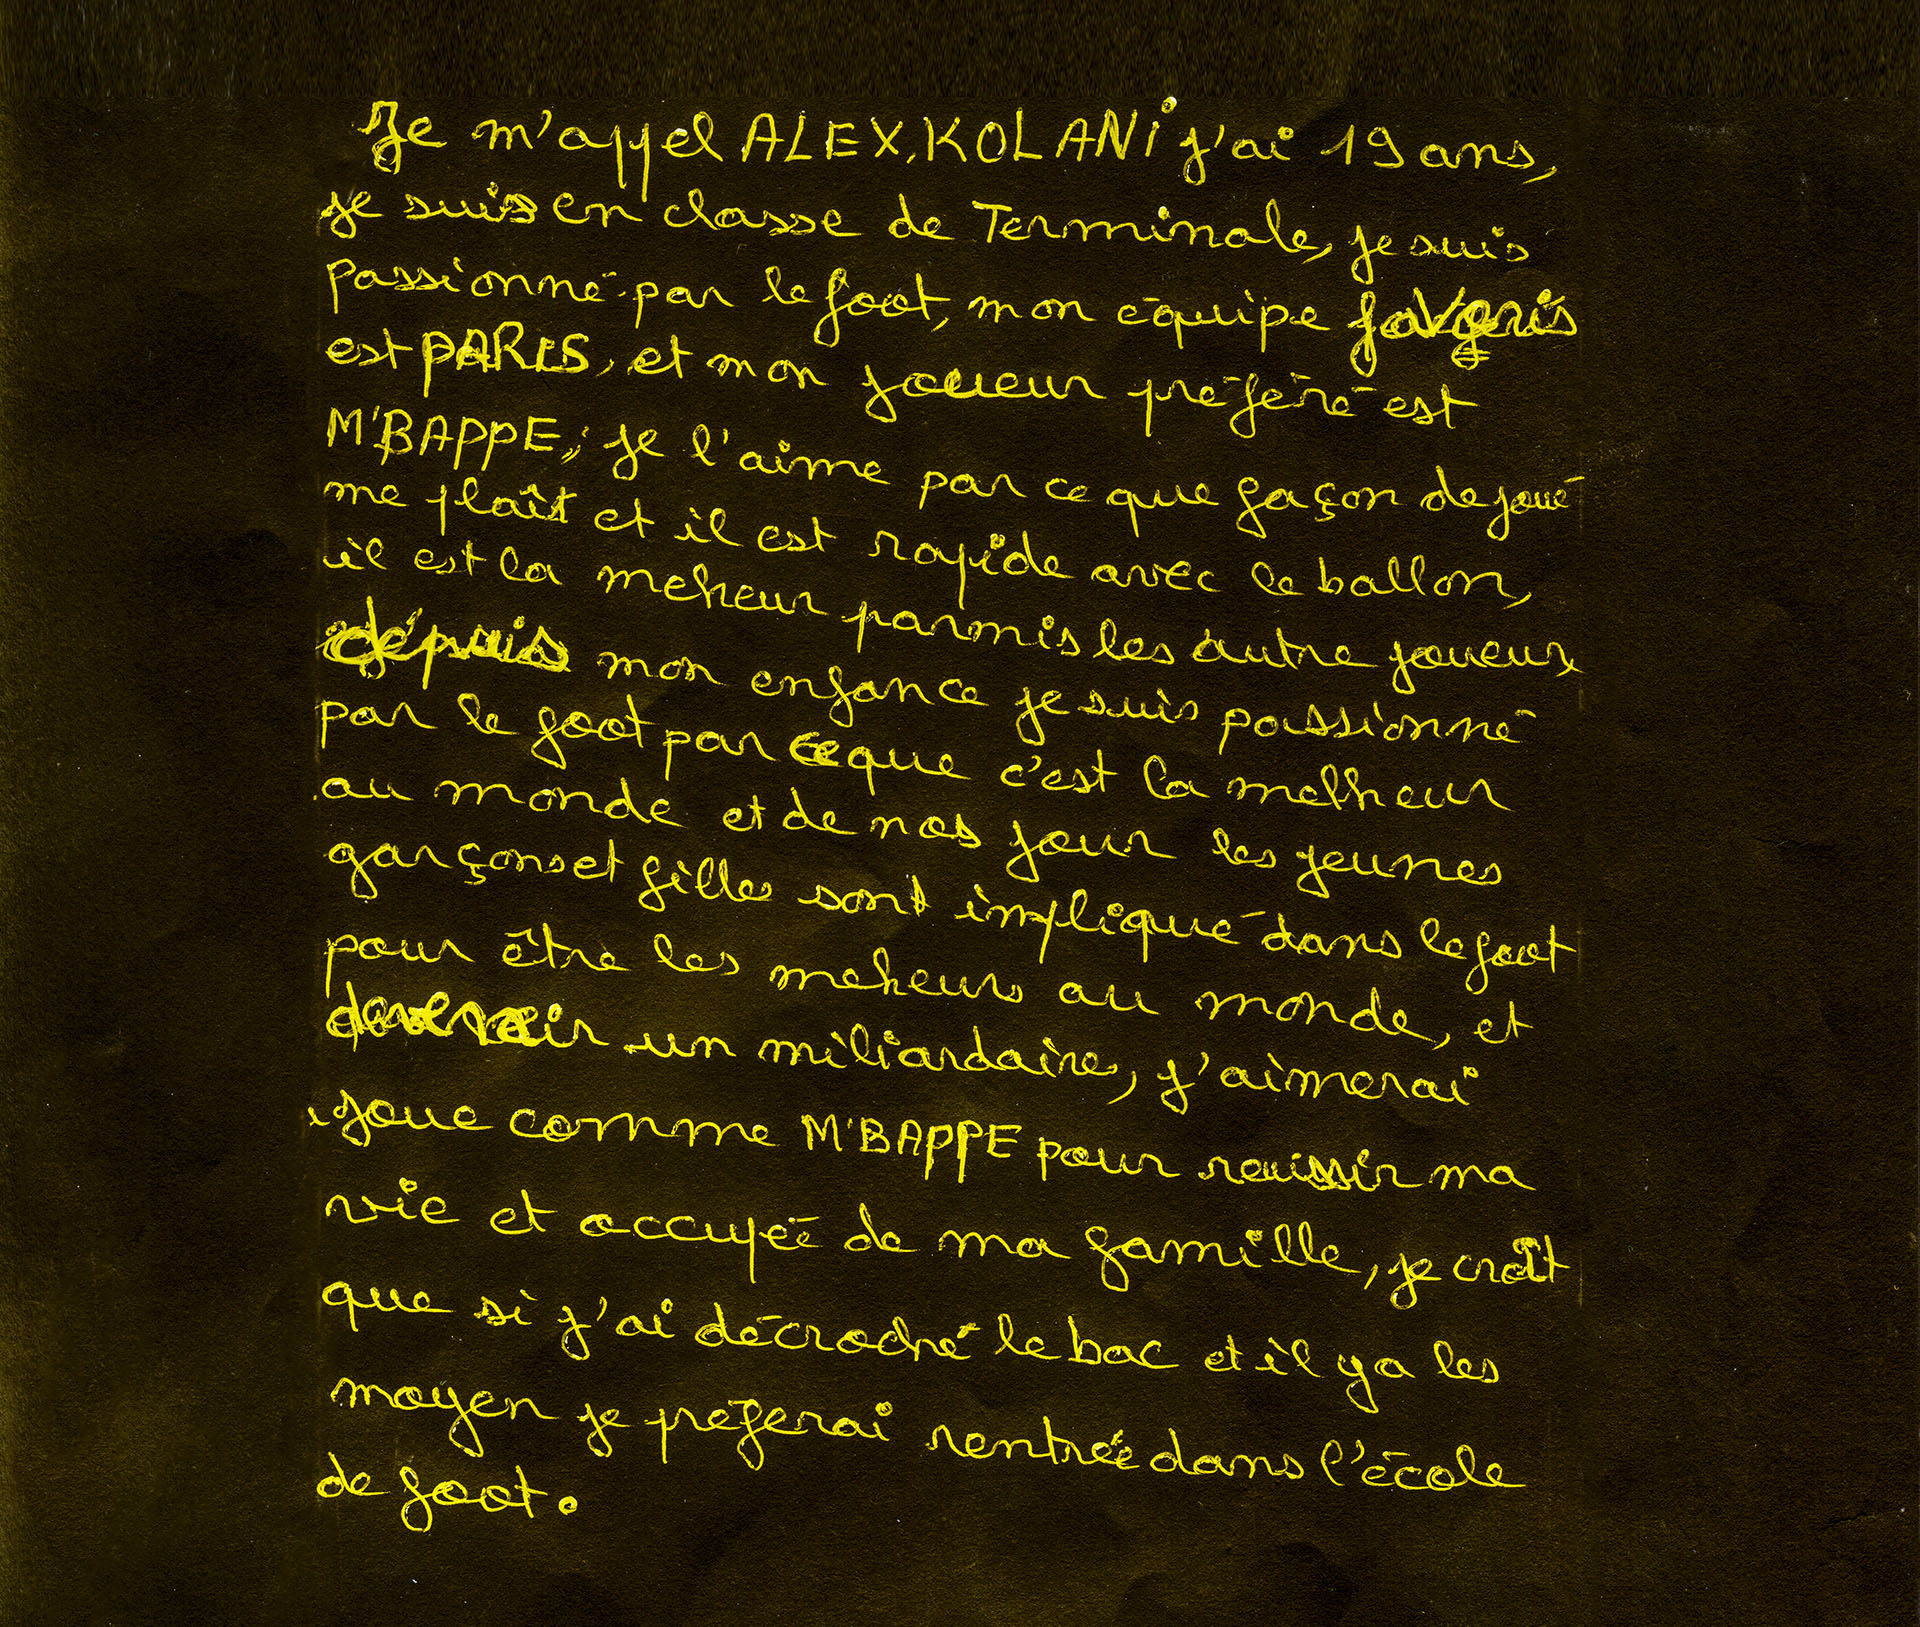 Je m'appel ALEX.KOLANi j'ai 19 ans,
je suis en classe de Terminale, je suis
passionné par le foot, mon équipe
est PARIS, et mon joueur préféré est
M'BAPPE, je l'aime par ce que façon de joué
me plaît et il est rapide avec le ballon,
il est la meheur parmis les autre joueur,
dépuis mon enfance je suis passionné
par le foot par ce que c'est la melheur
au monde et de nos jour les jeunes
garçons et filles sont impliqué dans le foot
pour être les meheurs au monde, et
devenir un miliardaire, j'aimerai
joue comme M'BAPPE pour reuissir ma
vie et occupée de ma famille, je croît
que si j'ai décroché le bac et il y a les
moyen je préferai rentrée dans l'école
de foot.